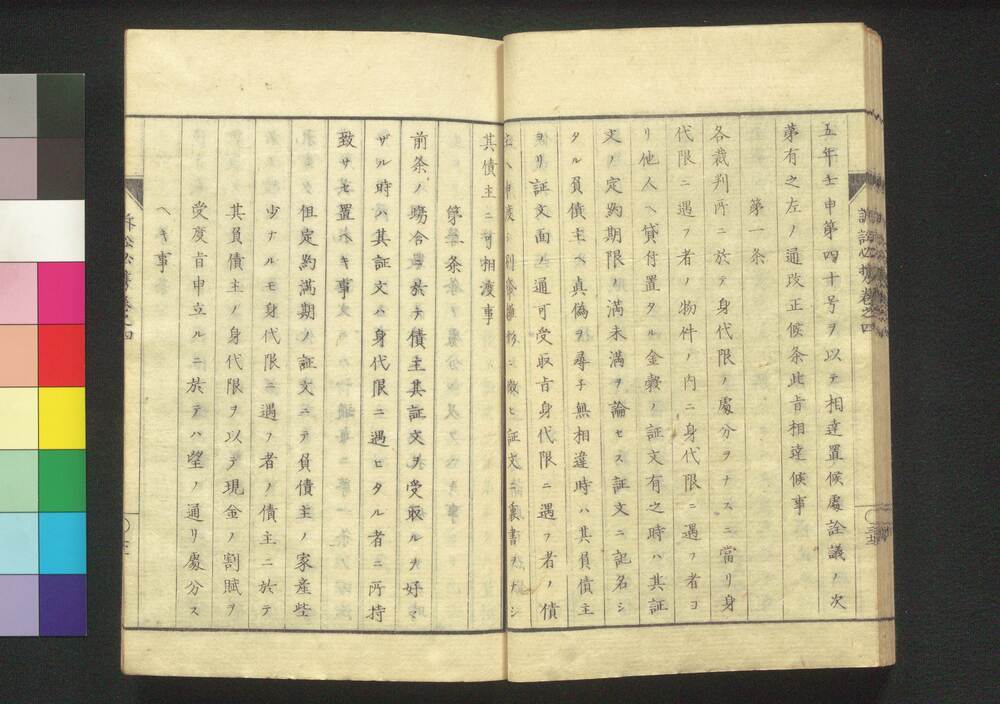 五年壬申第四十号ヲ以テ相達置候處詮議ノ次
第有之左ノ通改正候条此旨相達候事
第一条
各裁判所ニ於テ身代限ノ處分ヲナスニ當リ身
代限ニ遇フ者ノ物件ノ内ニ身代限ニ遇フ者ヨ
リ他人ヘ貸付置タル金穀ノ証文有之時ハ其証
文ノ定約期限ノ満未満ヲ論セス証文ニ記名シ
タル負債主ヘ真偽ヲ尋子無相違時ハ其負債主
ヨリ証文面ノ通可受取旨身代限ニ遇フ者ノ債
主ヘ申渡シ
ニ做ヒ証文ニ裏書ヲナシ
其債主ニ可相渡事
第二条
前条ノ場合ニ於テ債主其証文ヲ受取ルヲ好マ
ザル時ハ其証文ハ身代限ニ遇ヒタル者ニ所持
致サセ置ヘキ事
但定約満期ノ証文ニテ負債主ノ家産些
少ナルモ身代限ニ遇フ者ノ債主ニ於テ
其負債主ノ身代限ヲ以テ現金ノ割賦ヲ
受度旨申立ルニ於テハ望ノ通リ處分ス
ヘキ事
訴訟必携巻之四